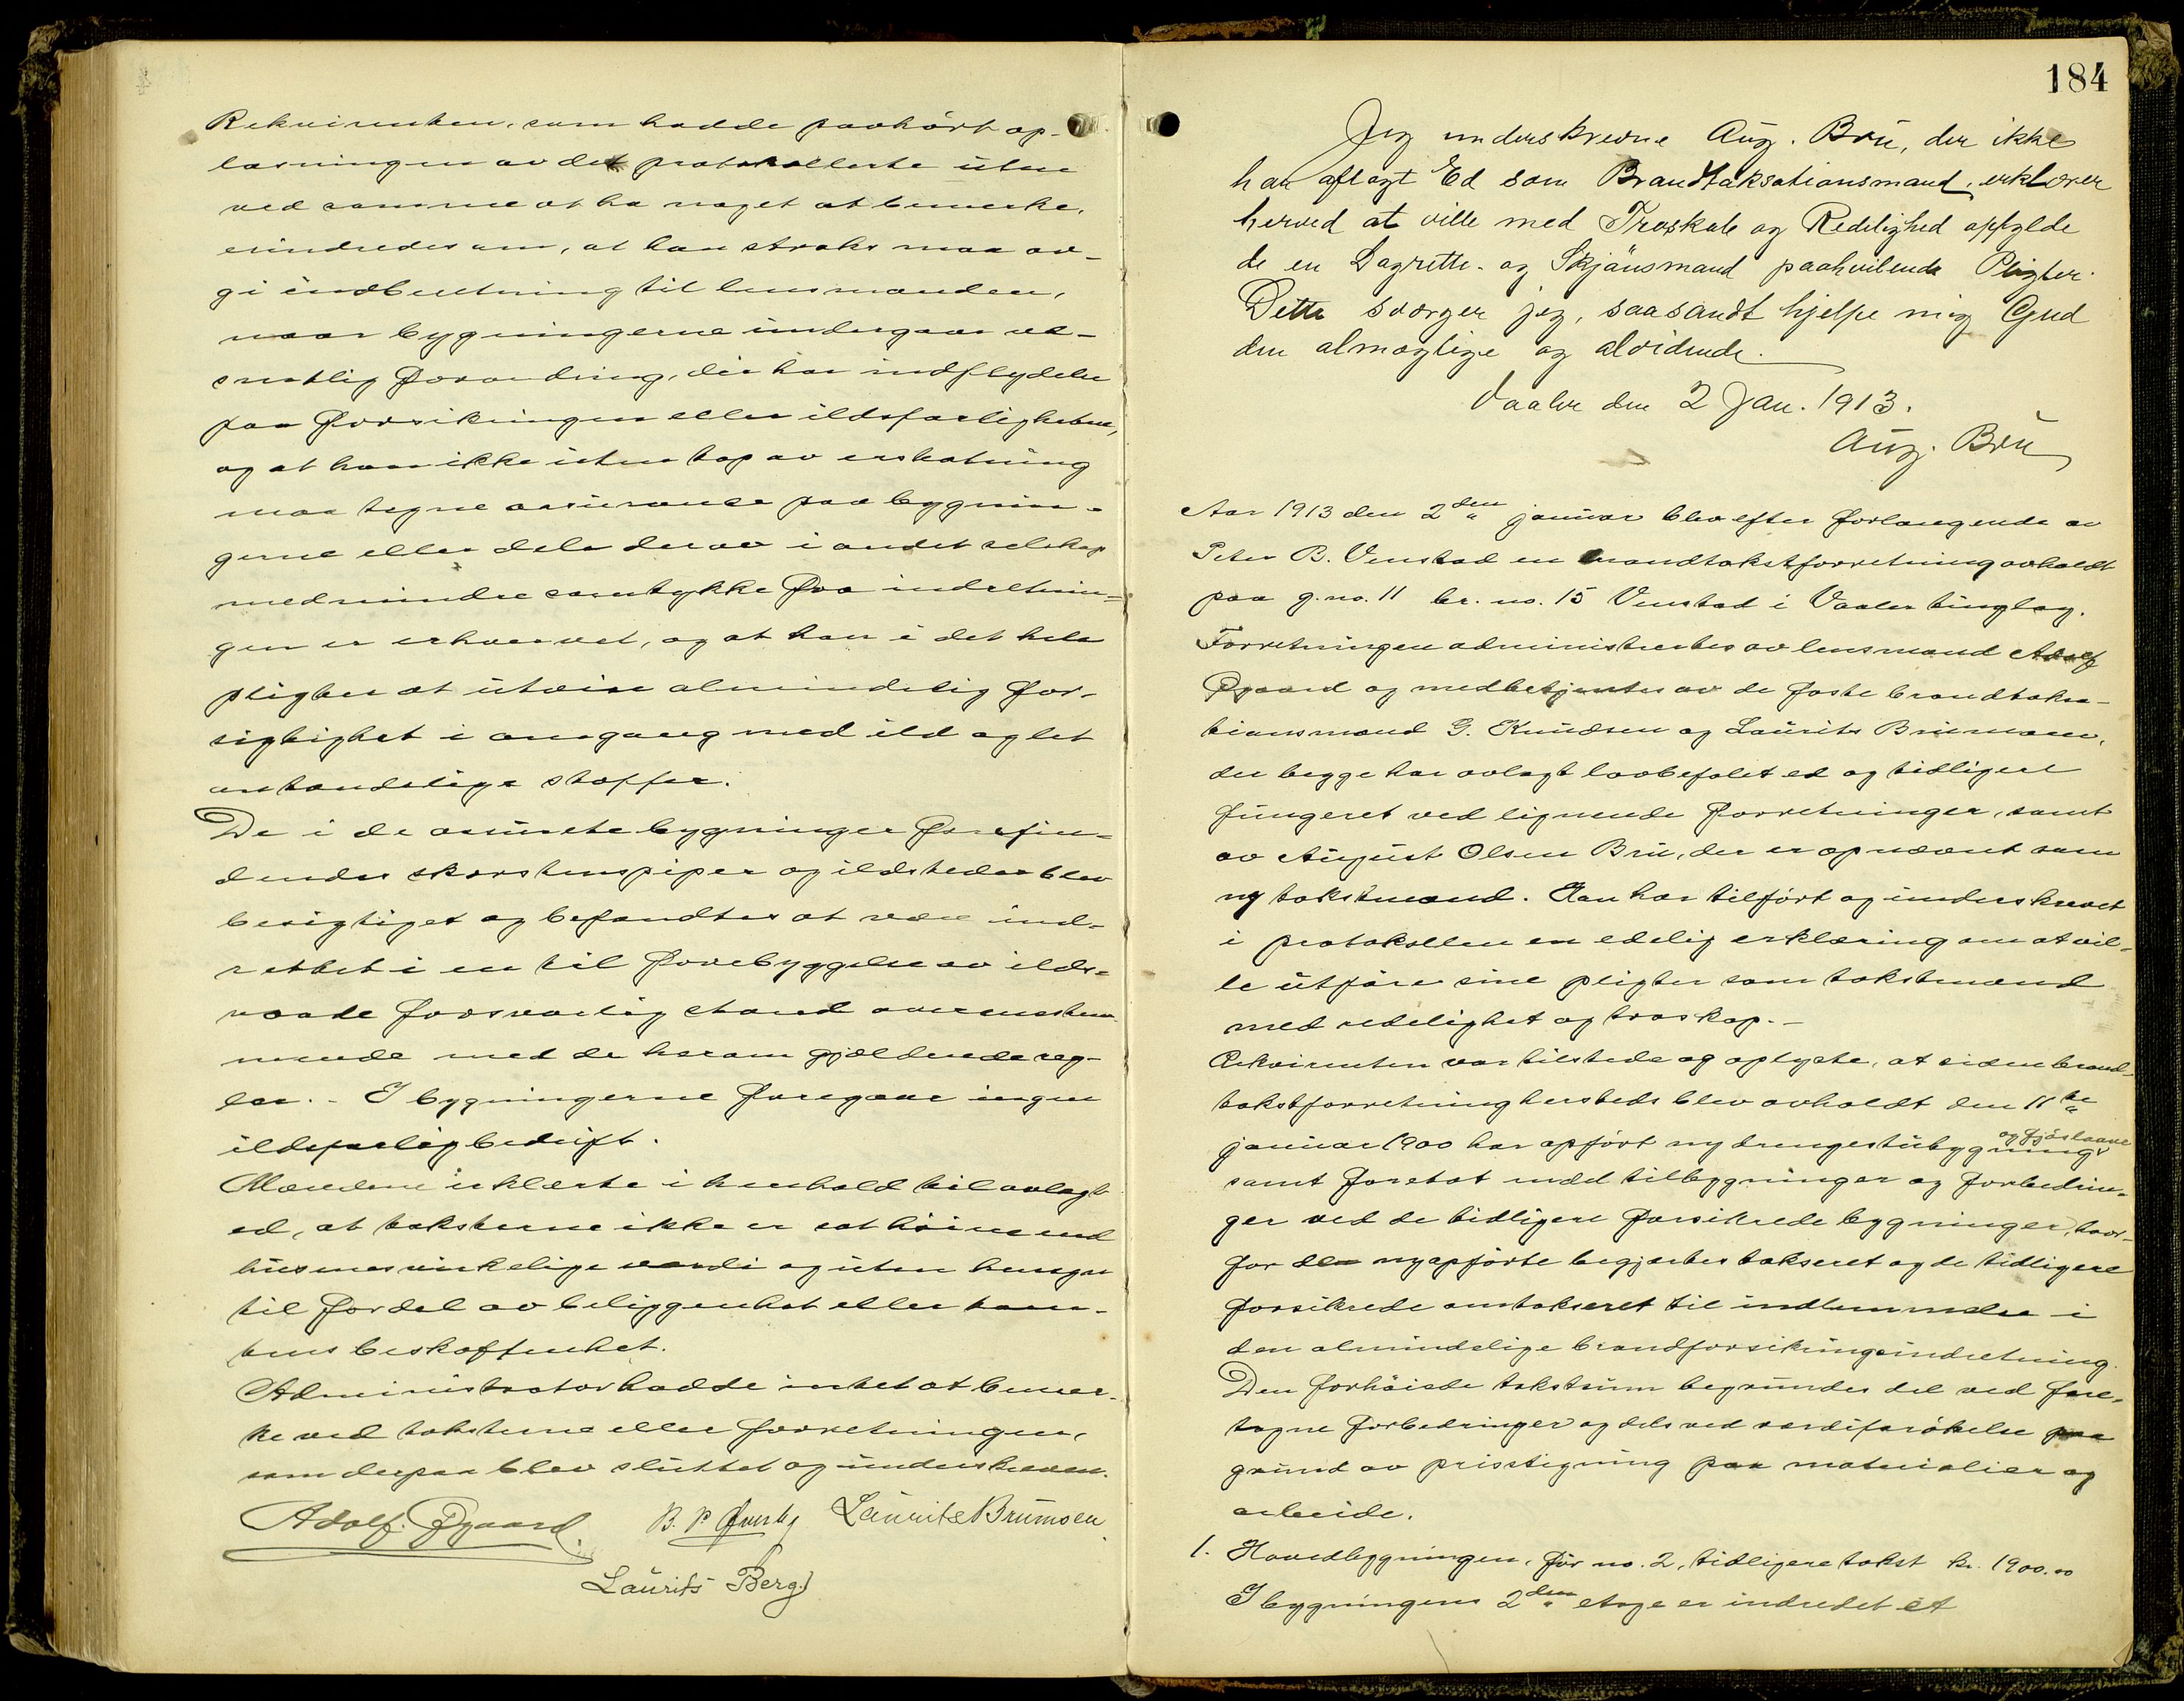 Rekvirenten, som hadde paahört op-
læsningen av det protokollerte uten
ved samme at ha noget at bemerke,
erindredes om, at han straks maa av-
gi indberetning til lensmanden,
naar bygningerne undergaar væ-
sentlig forandring, der har indflydelse
paa forsikringen eller ildsfarligheten,
og at han ikke uten tap av erstatning
maa tegne assurance paa bygnin-
gerne eller dele derav i andet selskap
medmindre samtykke fra indretnin-
gen er erhvervet, og at han i det hele
pligter at utvise almindelig for-
sigtighet i omgang med ild og let
antændelige stoffer.
De i de assurerte bygninger forefin-
dendes skorstenspiper og ildsteder blev
besigtiget og befandtes at være ind-
rettet i en til forebyggelse av ilds-
vaade forsvarlig stand overensstem-
mende med de herom gjældende reg-
ler. - I bygningerne foregaar ingen
ildsfarlig bedrift.
Mændene erklærte i henhold til avlagt
ed, at taksterne ikke er sat höiere end
husenes virkelige værdi og uten hensyn
til fordel av beliggenhet eller tom-
tens beskaffenhet.
Administrator hadde intet at bemer-
ke ved taksterne eller forretningen,
som derpaa blev sluttet og underskreven.
Adolf Øgaard. B. P. Øverby Laurits Brumoen
Laurits Berg
184
Jeg underskrevne Aug. Bru, der ikke
har aflagt Ed som Brandtaksationsmand, erklærer
herved at ville med Troskab og Redelighed opfylde
de en Lagrette- og Skjönsmand paahvilende Pligter.
Dette sværger jeg, saasandt hjelpe mig Gud
den almægtige og alvidende.
Vaaler den 2 Jan. 1913.
Aug. Bru
Aar 1913 den 2den januar blev efter forlangende av
Peter B. Venstad en brandtakstforretning avholdt
paa g.no. 11 br. no. 15 Venstad i Vaaler tinglag.
Forretningen administrertes av lensmand Adolf
Øgaard og medbetjentes av de faste brandtaksa-
tionsmænd G. Knudsen og Laurits Brumoen,
der begge har avlagt lovbefalet ed og tidligere
fungeret ved lignende forretninger, samt
av August Olsen Bru, der er opnævnt som
ny takstmand. Han har tilført og underskrevet
i protokollen en edelig erklæring om at vil-
le utføre sine pligter som takstmand
med redelighet og troskap. -
Rekvirenten var tilstede og oplyste, at siden brand-
takstforretning hersteds blev avholdt den 11te
januar 1900 har opfört ny drengestubygning og fjöslaave
samt foretat endel tilbygninger og forbedrin-
ger ved de tidligere forsikrede bygninger, hvor-
for den nyopförte begjærtes takseret og de tidligere
forsikrede omtakseret til indlemmelse i
den almindelige brandforsikringsindretning.
Den forhöiede takstsum begrundes del ved fore-
tagne forbedringer og dels ved værdiforökelse paa
grund av prisstigning paa materialier og
arbeide.
1. Hovedbygningen, för no. 2, tidligere takst kr. 1900.00
I bygningens 2den etage er indredet et